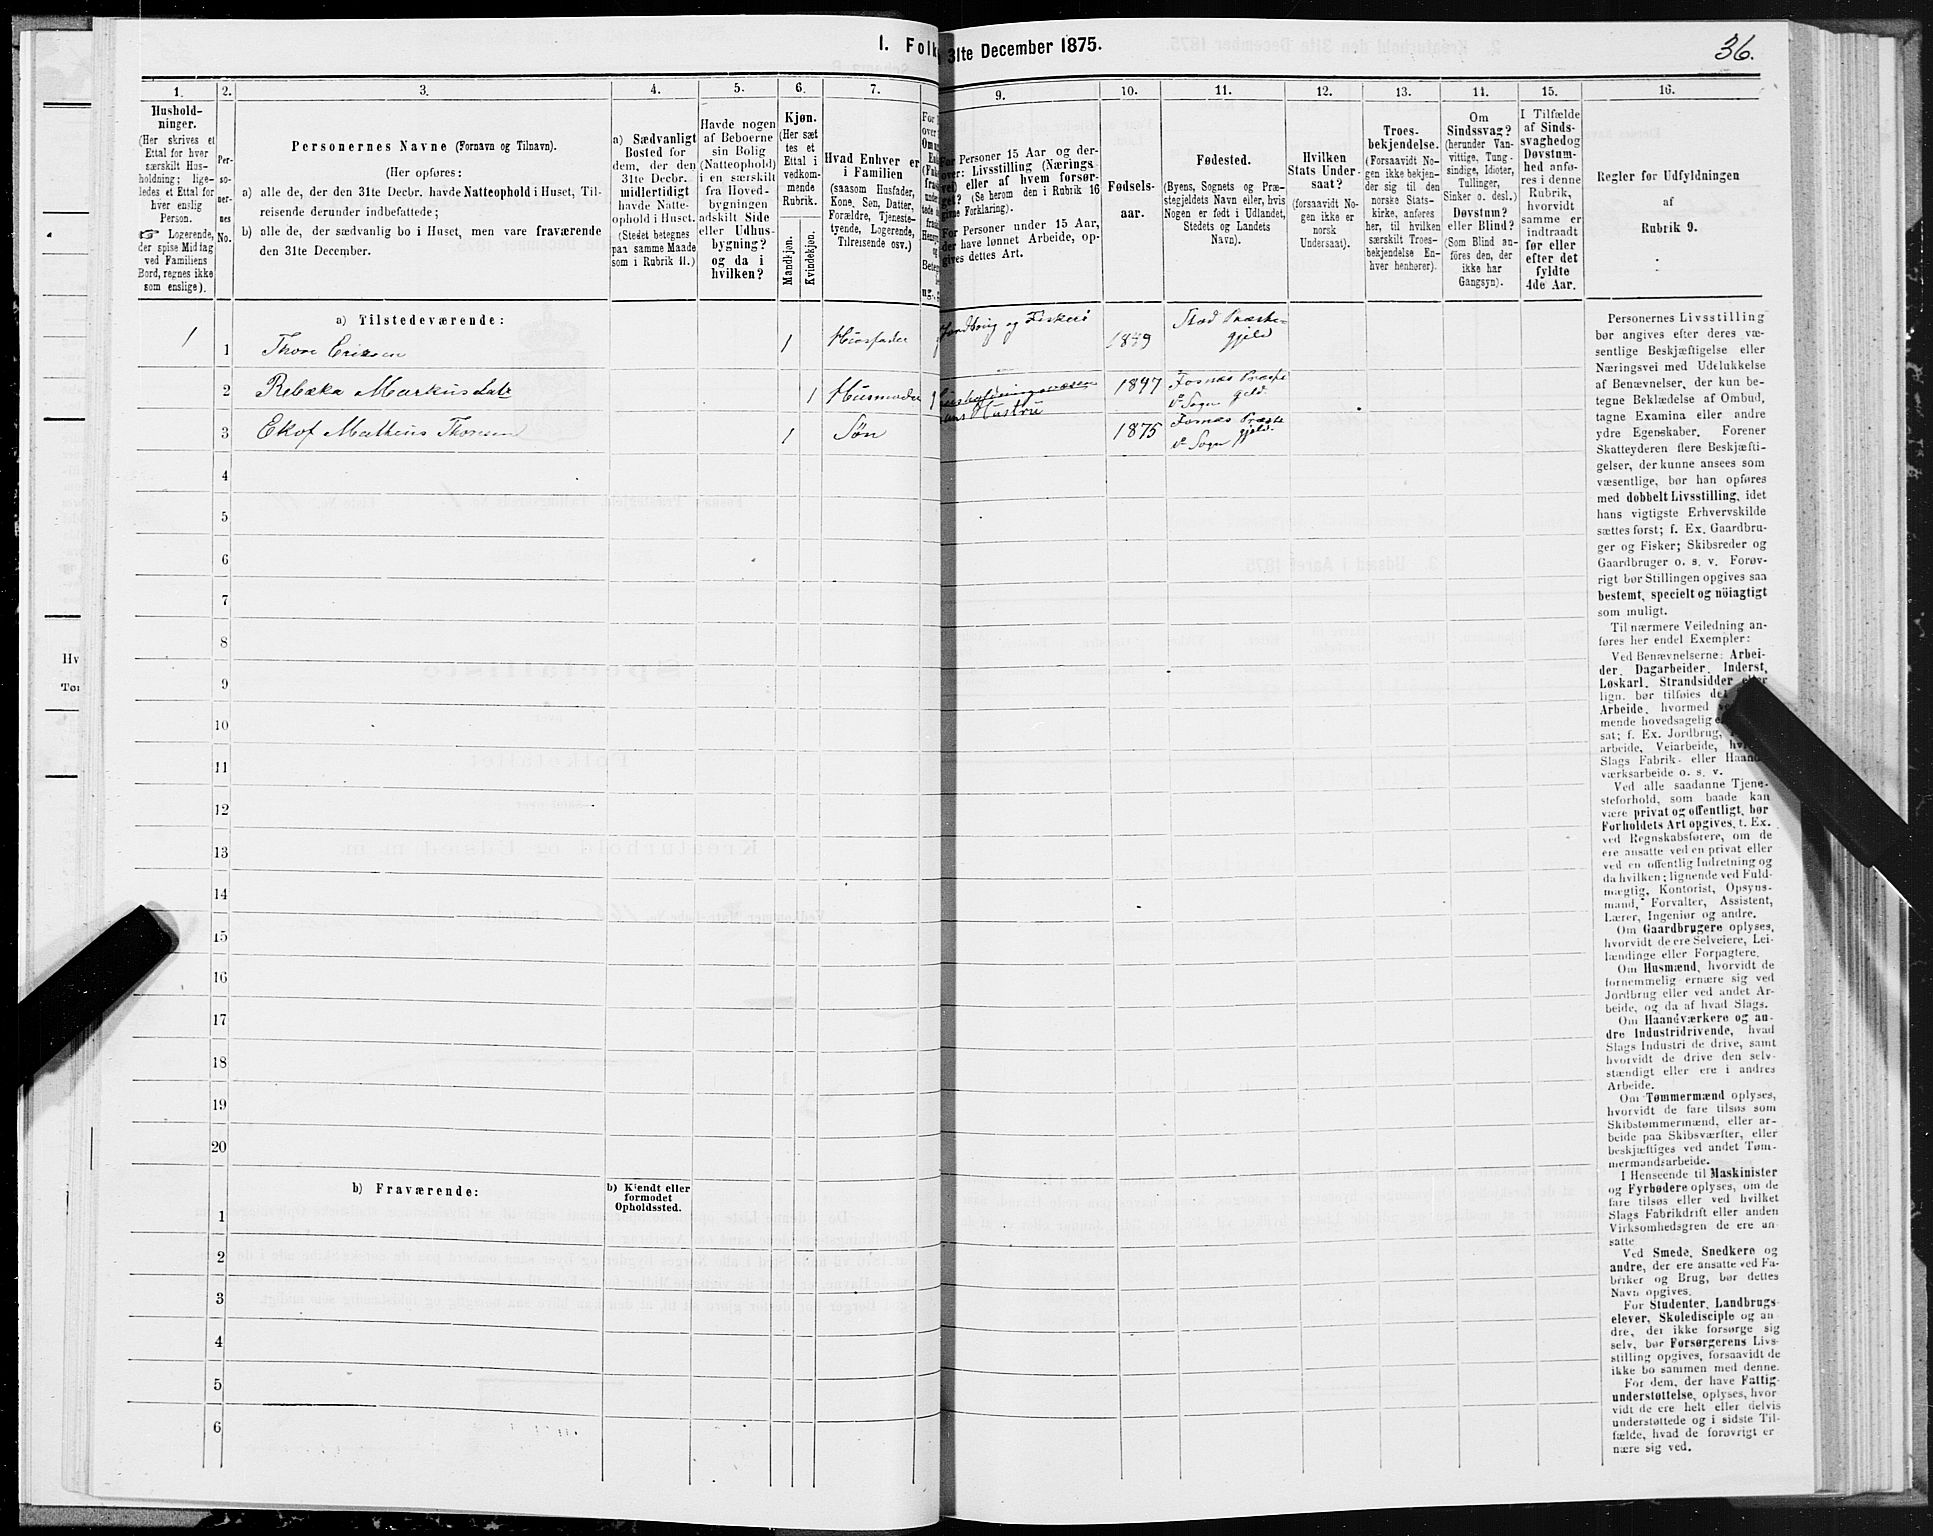 36.
1. Folk
31te December 1875.
1.
2.
3.
4.
5.
6.
7.
9.
10.
11.
12.
13.
14.
15.
16.
Hushold-
ninger.
(Her skrives et
Ettal for hver
særskilt Hus-
holdning; lige-
ledes et Ettal for
hver enslig
Person.
☞ Logerende,
der spise Middag
ved Familiens
Bord, regnes ikke
som enslige).
Per-
so-
ner-
nes
No.
Personernes Navne (Fornavn og Tilnavn).
(Her opføres:
a) alle de, der den 31te Decbr. havde Natteophold i Huset, Til-
reisende derunder indbefattede;
b) alle de, der sædvanlig bo i Huset, men vare fraværende
den 31te December.
a) Sædvanligt
Bosted for
dem, der den
31te Decbr.
midlertidigt
havde Natte-
ophold i Huset.
(Stedet betegnes
paa samme Maade
som i Rubrik 11.)
Havde nogen
af Beboerne
sin Bolig
(Natteophold)
i en særskilt
fra Hoved-
bygningen
adskilt Side
eller Udhus-
bygning?
og da i
hvilken?
Kjøn.
(Her sæt
tes et
Ettal i
vedkom-
mende
Rubrik.
Mandkjøn.
Kvindekjøn.
Hvad Enhver er
i Familien
(saasom Husfader,
Kone, Søn, Datter,
Forældre, Tjeneste-
tyende, Logerende,
Tilreisende osv.)
For Personer 15 Aar og der-
over: Livsstilling (Nærings
vei) eller af hvem forsør-
get? (Se herom den i Rubrik 16
givne Forklaring).
For Personer under 15 Aar,
der have lønnet Arbeide, op-
gives dettes Art.
Fødsels-
aar.
Fødested.
(Byens, Sognets og Præ-
stegjeldets Navn eller, hvis
Nogen er født i Udlandet,
Stedets og Landets
Navn).
Hvilken
Stats Under-
saat?
(forsaavidt No-
gen ikke er
norsk
Undersaat).
Troes-
bekjendelse.
(Forsaavidt No-
gen ikke bekjen-
der sig til den
norske Stats-
kirke, anføres
her, til hvilken
særskilt Troes-
bekjendelse En-
hver henhører).
Om
Sindssvag?
(herunder Van-
vittige, Tung-
sindige, Idioter,
Tullinger,
Sinker o. desl.)
Døvstum?
eller Blind?
(Som Blind an-
føres den, der
ikke har
Gangsyn).
I Tilfælde
af Sinds-
svaghed og
Døvstum-
hed anfø-
res i denne
Rubrik,
hvorvidt
samme er
indtraadt
før eller
efter det
fyldte
4de Aar.
Regler før Udfyldningen
af
Rubrik 9.
a) Tilstedeværende:
1 1 Thore Ericksen 1 Husfader Jordbrug og Fiskeri 1849 Stad Præste-
gjeld
2 Rebæka Markusdatr 1 Husmoder Husholdningsvæsen 1847 Fosnæs Præste
hans Hustru do Sogn gjeld.
3 Ekof Matheus Thoresen 1 Søn 1875 Fosnæs Præste
do Sogn gjeld.
4
5
6
7
8
9
10
11
12
13
14
15
16
17
18
19
20
b) Fraværende:
b) Kjendt eller
formodet
Opholdssted.
1
2
3
4
5
6
Personernes Livsstilling
bør angives efter deres væ-
sentlige Beskjæftigelse eller
Næringsvei med Udelukkelse
af Benævnelser, der kun be-
tegne Beklædelse af Ombud,
tagne Examina eller andre
ydre Egenskaber. Forener
Skatteyderen flere Beskjæfti-
gelser, der kunne ansees som
væsentlige, bør han opføres
med dobbelt Livsstilling, idet
hans vigtigste Erhvervskilde
sættes først; f. Ex. Gaardbru-
ger og Fisker; Skibsreder og
Gaardbruger o. s. v. Forøv-
rigt bør Stillingen opgives saa
bestemt, specielt og nöiagtigt
som muligt.
Til nærmere Veiledning an-
føres her endel Exempler:
Ved Benævnelserne: Arbei-
der, Dagarbeider, Inderst,
Løskarl, Strandsidder eller
lign. bør tilføies det
Arbeide, hvormed
mende hovedsagelig
sat; f. Ex. Jordbrug,
arbeide, Veiarbeide,
Slags Fabrik- eller Haand-
værksarbeide o. s. v.
Ved alle saadanne Tjene-
steforhold, som baade kan
være privat og offentligt, bør
Forholdets Art opgives, t. Ex.
ved Regnskabsførere, om de
ere ansatte ved en privat eller
ved en offentlig Indretning og
da hvilken; lignende ved Fuld-
mægtig, Kontorist, Opsyns-
mand, Forvalter, Assistent,
Lærer, Ingeniør og andre.
Om Gaardbrugere oplyses,
hvorvidt de ere Selveiere, Lei-
lændinge eller Forpagtere.
Om Husmænd, hvorvidt de
fornemmelig ernære sig ved
Jordbrug eller ved andet Ar-
beide, og da af hvad Slags.
Om Haandværkere og an-
dre Industridrivende, hvad
Slags Industri de drive, samt
hvorvidt de drive den selv-
stændigt eller ere i andres
Arbeide.
Om Tømmermænd oplyses,
hvorvidt de fare tilsøs som
Skibstømmermænd, eller ar-
beide paa Skibsværfter, eller
beskjæftiges ved andet Tøm-
mermandsarbeide.
I Henseende til Maskinister
og Fyrbødere oplyses, om de
fare tilsøs eller ved hvilket
Slags Fabrikdrift eller anden
Virksomhedsgren de ere an-
satte
Ved Smede, Snedkere og
andre, der ere ansatte ved Fa-
briker og Brug, bør dettes
Navn opgives.
For Studenter, Landbrugs-
elever, Skoledisciple og an
dre, der ikke forsørge sig
selv, bør Forsørgerens Livs-
stilling opgives, forsaavidt de
ikke bo sammen med denne.
For dem, der have Fattig-
understøttelse, oplyses, hvor-
vidt de ere helt eller delvis
understøttede og i sidste Til-
fælde, hvad de forøvrigt er
nære sig ved.